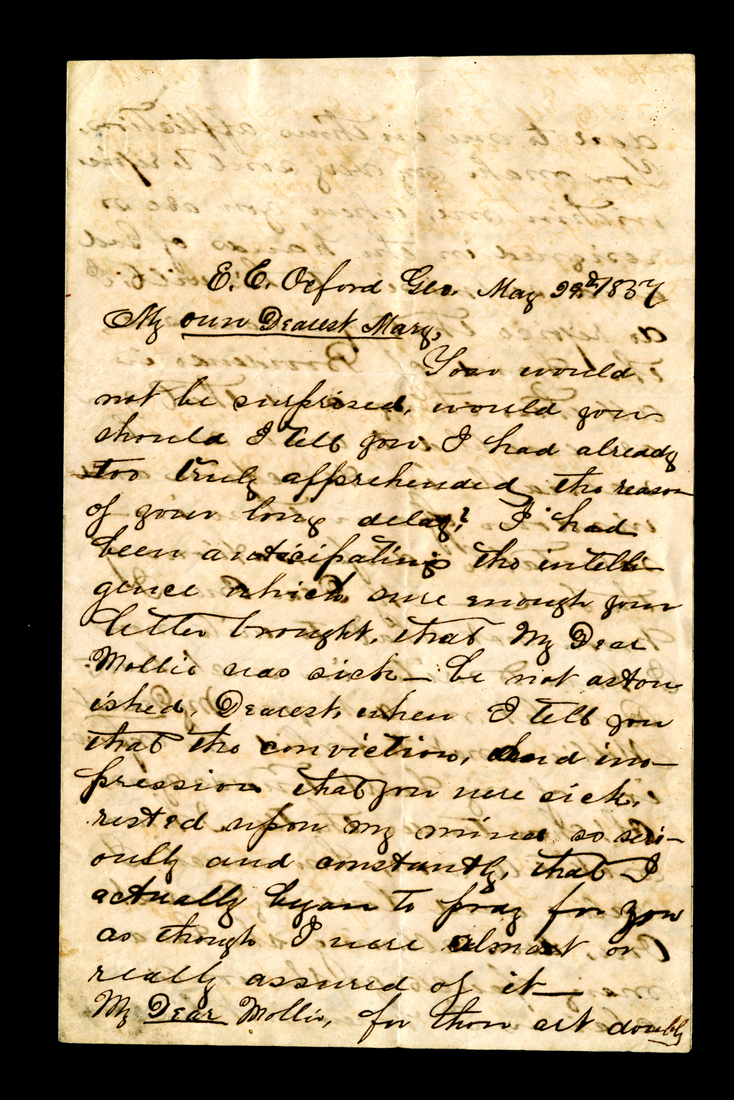 E. C. Oxford Geo. May 29th/1857
My own Dearest Mary,
Your would
not be surprised, would you
should I tell you I had already
too truly apprehended the reason
of your long delay? I had
been anticipating the intelli-
gence which sure enough your
letter brought, that My Dear
Mollie was sick— be not aston-
ished, Dearest, when I tell you
that the conviction, and im-
pression that you were sick,
rested upon my mind so seri-
ously and constantly, that I
actually began to pray for you
as though I were almost or
really assured of it—
My Dear Mollie, for thou art doubly